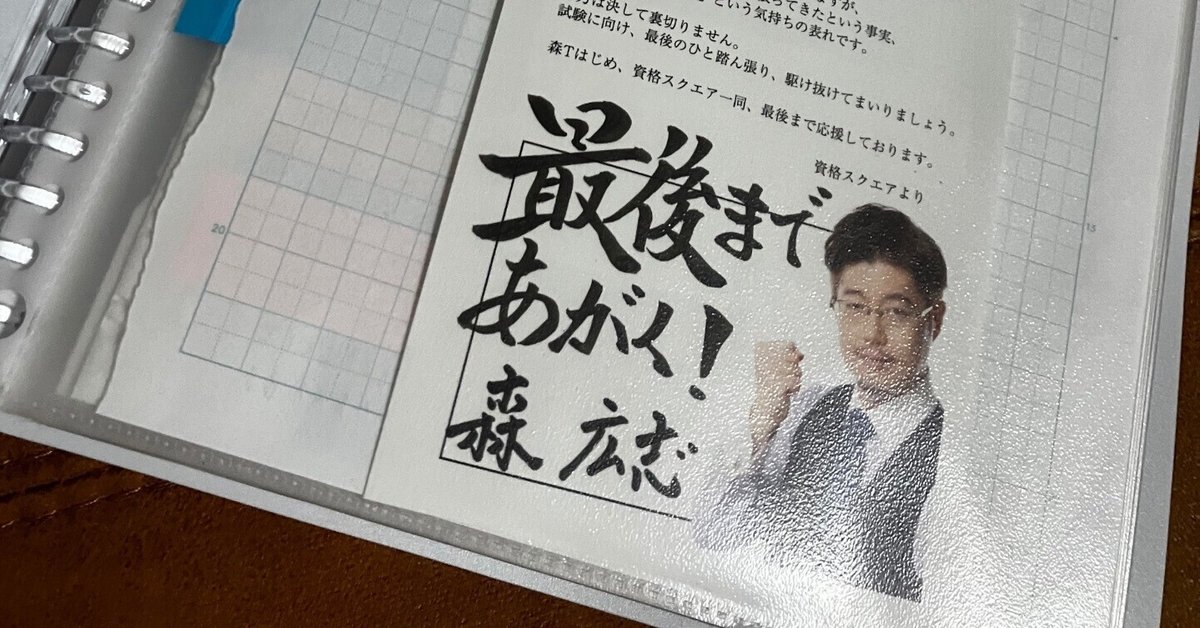 ますが、
ってきたという事実、
という気持ちの表れです。
は決して裏切りません。
試験に向け、最後のひと踏ん張り、駆け抜けてまいりましょう。
森Tはじめ、資格スクエア一同、最後まで応援しております。
資格スクエアより
最後まで
あがく!
森 広志
20
15